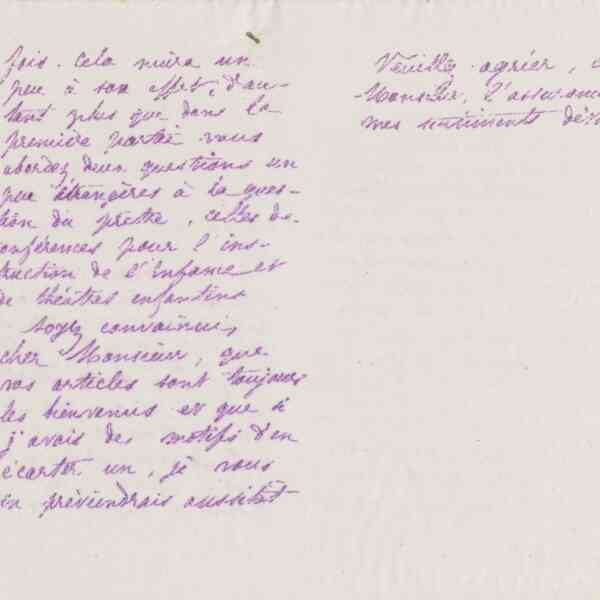 fois. Cela nuira un
peu à son effet, d'au-
tant plus que dans la
première partie vous
abordez deux questions un
peu étrangères à la ques-
tion du prêtre, celles de
conférences pour l'ins-
truction de l'enfance et
de théâtres enfantins
Soyez convaincu,
cher Monsieur, que
vos articles sont toujours
les bienvenus et que si
j'avais des motifs d'en
écarter un, je vous
en préviendrais aussitôt
Veuillez agréer,
Monsieur, l'assurance
mes sentiments